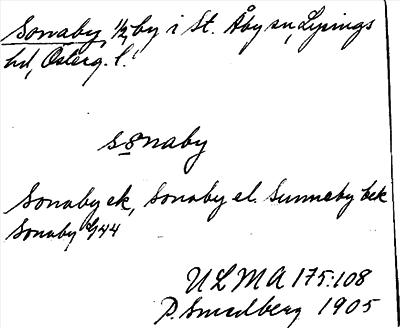 Sonaby, 1/2 by i St. Åby sn, Lysings
hd, Österg. l.
sånaby
Sonaby ek, Sonaby el. Sunneby bek
Sonaby 1/4 44
ULMA 175:108
P. Smedberg 1905